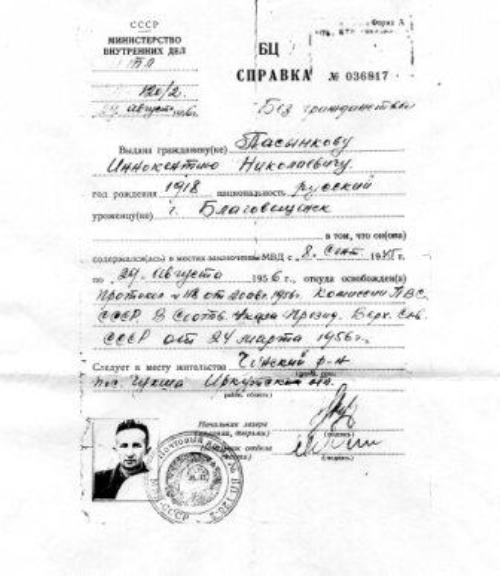 СССР
МИНИСТЕРСТВО
ВНУТРЕННИХ ДЕЛ
Форма А
120/2.
29 август 1956г.
БЦ
СПРАВКА № 036817
Без гражданства
Выдана гражданину(ке) Пасынкову
Иннокентию Николаевичу
год рождения 1918 национальность русский
уроженцу(ке) г. Благовещенск
в том, что он(она)
содержался(ась) в местах заключения МВД с 8. Сент. 1945 г.
по 29. Августа 1956 г., откуда освобожден(а)
Протокол № 118 от 20 авг. 1956г. Комиссии ПВС
СССР В Соотв. Указа Презид. Верх. Сов.
СССР от 24 марта 1956г.
Следует к месту жительства р-н
пос. Иркутская
Начальник лагеря
(подпись)
Начальник отдела
(подпись)
ПОЧТОВЫЙ ЯЩИК
СССР